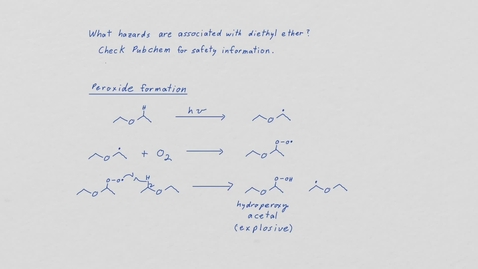 What hazards are associated with diethyl ether?
Check Pubchem for safety information.
Peroxide formation
H
hν
O
O
O
+ O2
O-O•
O
O-O•
O
H
O
O-OH
O
O
hydroperoxy
acetal
(explosive)